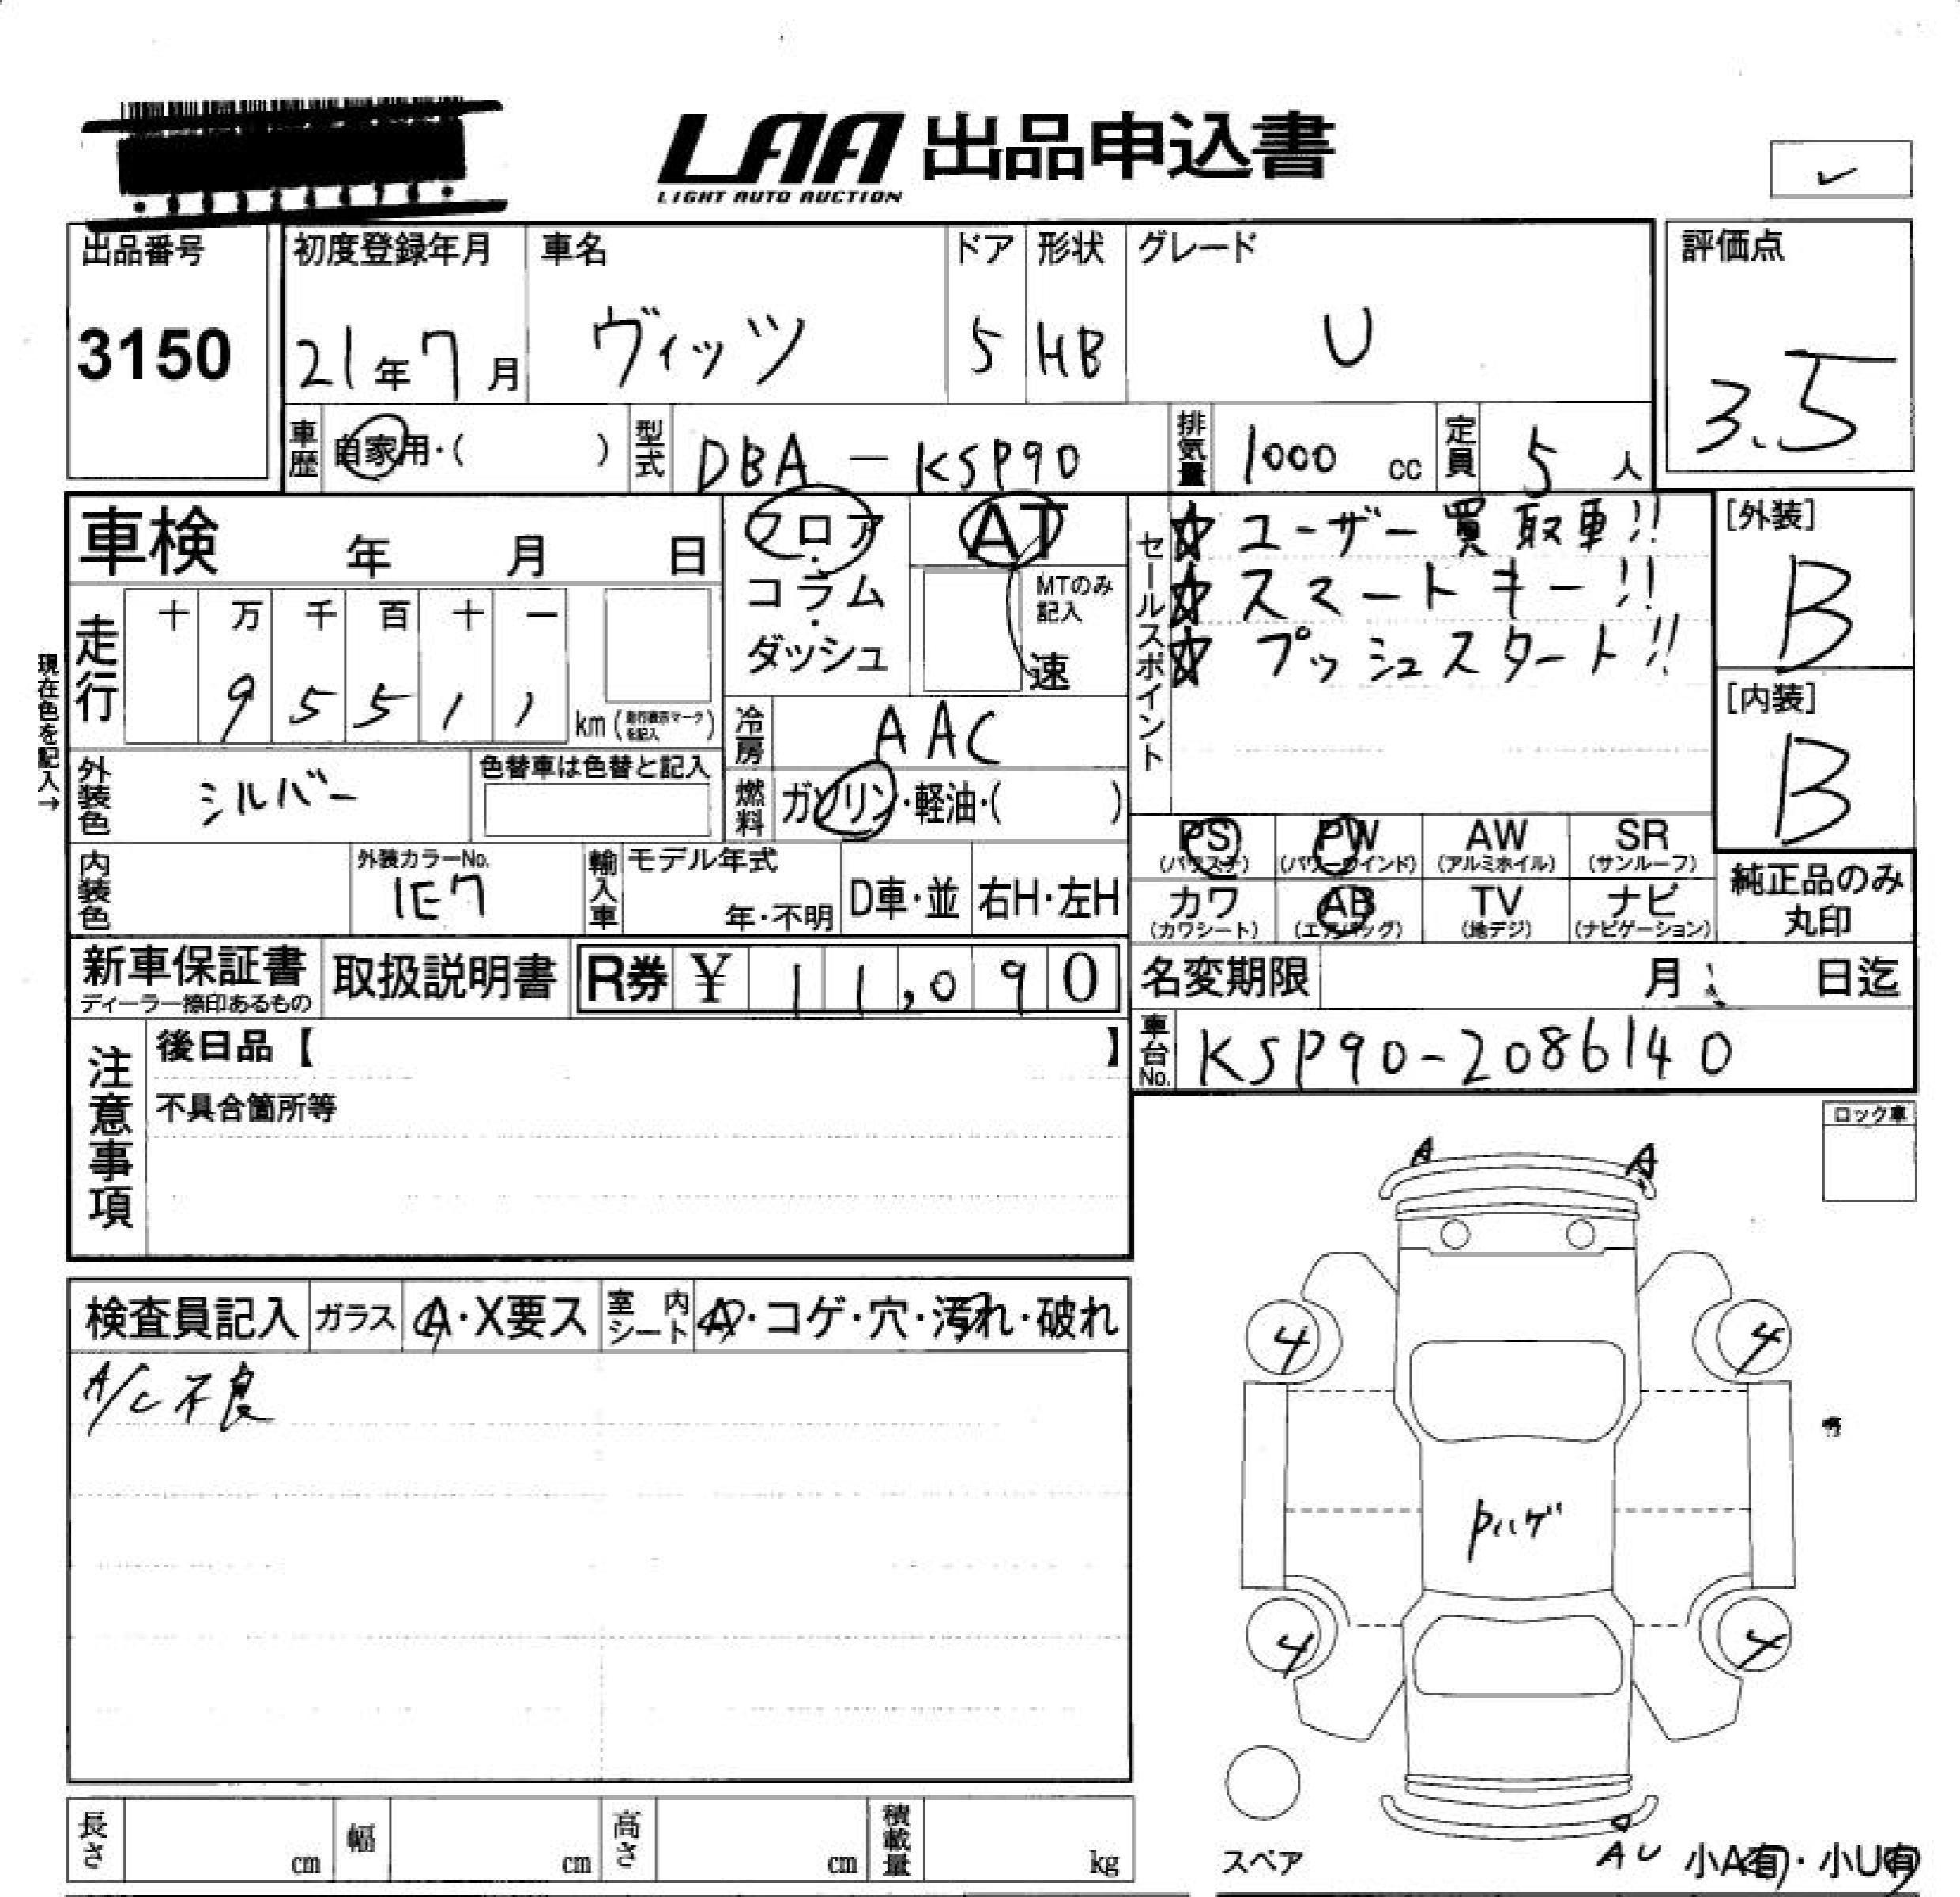 LAA 出品申込書
LIGHT AUTO AUCTION
✓
出品番号
3150
初度登録年月
21年7月
車名
ヴィッツ
ドア
5
形状
HB
グレード
U
評価点
3.5
車歴
自家用・( )
型式
DBA-KSP90
排気量
1000 cc
定員
5 人
車検 年 月 日
走行
十 万 千 百 十 一
9 5 5 1 1
km(走行表示マークを記入)
現在色を記入→
外装色
シルバー
色替車は色替と記入
内装色
外装カラーNo.
1E7
輸入車
モデル年式
年・不明
D車・並
右H・左H
フロア・コラム・ダッシュ
AT
MTのみ記入
速
冷房
AAC
燃料
ガソリン・軽油・( )
セールスポイント
☆ユーザー買取車!!
☆スマートキー!!
☆プッシュスタート!!
[外装]
B
[内装]
B
PS
(パワステ)
PW
(パワーウインド)
AW
(アルミホイル)
SR
(サンルーフ)
カワ
(カワシート)
AB
(エアバッグ)
TV
(地デジ)
ナビ
(ナビゲーション)
純正品のみ
丸印
新車保証書
ディーラー捺印あるもの
取扱説明書
R券 ¥ 11,090
名変期限 月 日迄
車台No.
KSP90-2086140
注意事項
後日品【 】
不具合箇所等
ロック車
検査員記入
ガラス
A・X要ス
室内シート
A・コゲ・穴・汚れ・破れ
A/C不良
A
A
4
4
Pハゲ
4
4
スペア
AU
小A有・小U有
長さ
cm
幅
cm
高さ
cm
積載量
kg